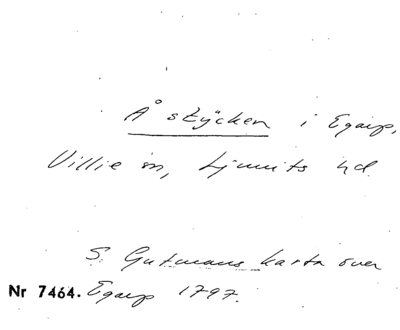 Å stycken i Egarp,
Villie sn, Ljunits hd
S. Gutmans karta över
Nr 7464. Egarp 1797.